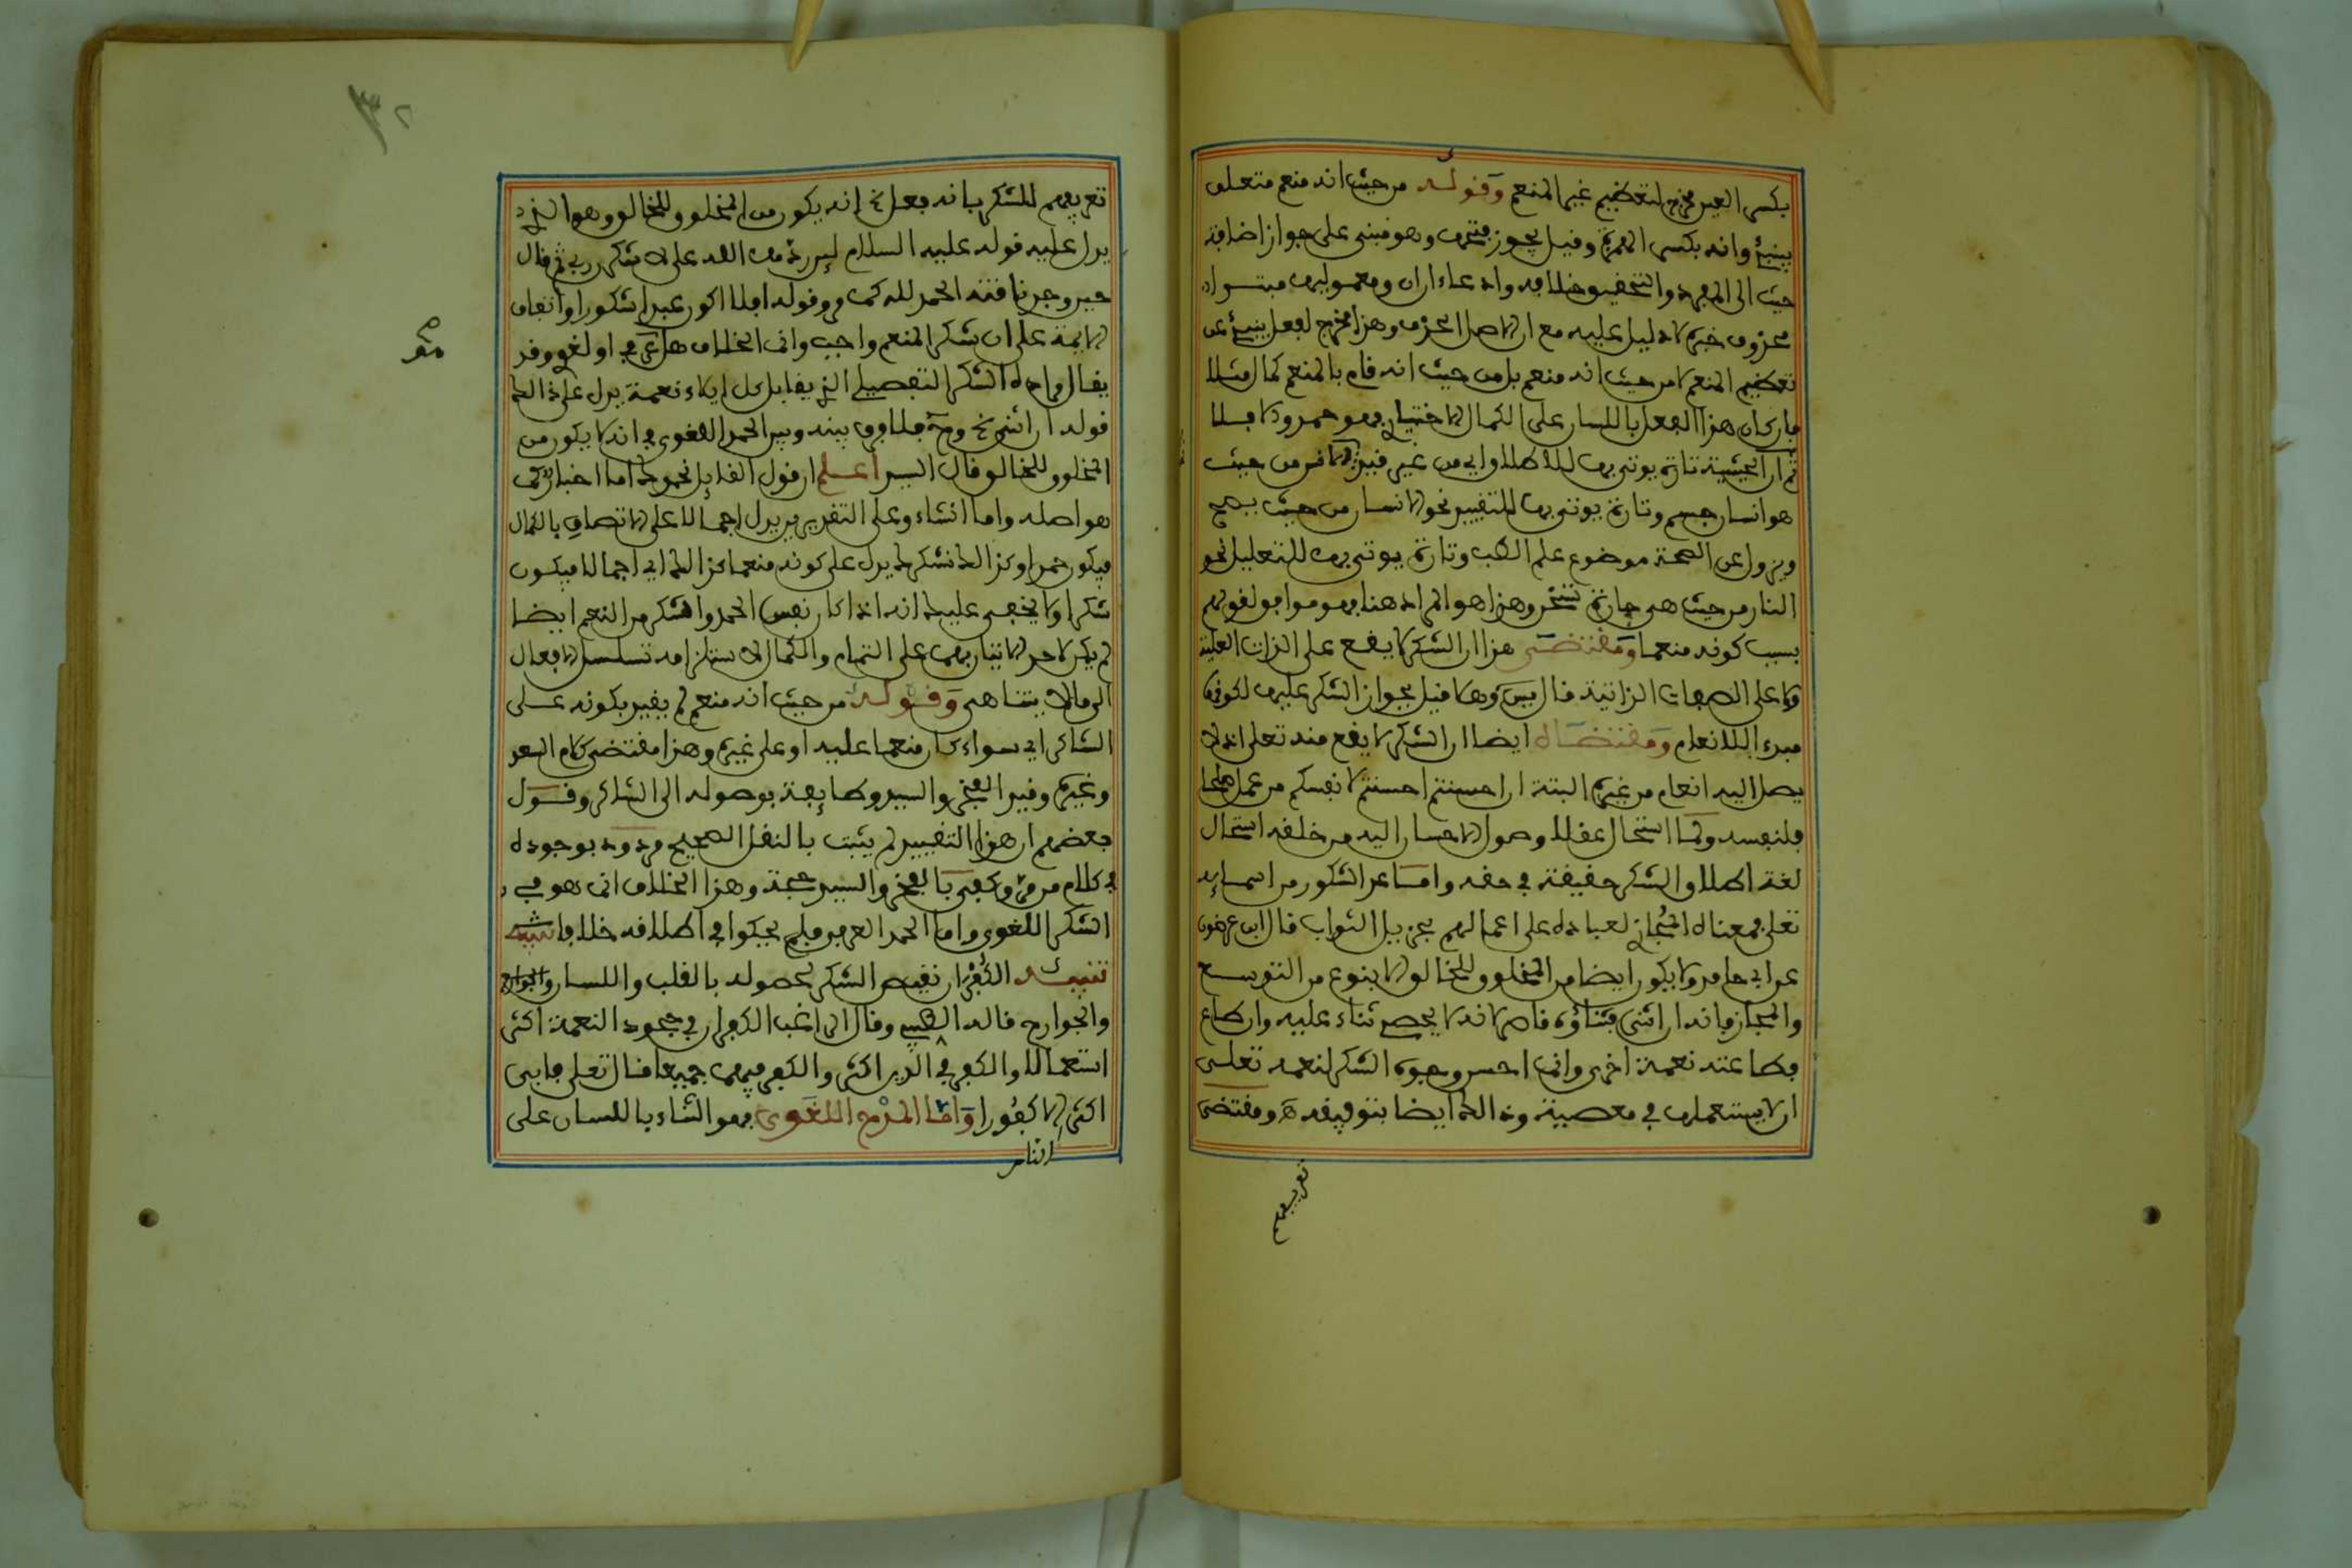 بكسر العين مخرج لتعظيم غير المنعم وقوله من حيث انه منعم متعلق
بينبئ وانه بكسر الهمزة وقيل يجوز فتحها وهو مبنى على جواز اضافة
حيث الى المفرد والتحقيق خلافه وادعاء ان ان ومعموليها مبتدا
محذوف خبره لا دليل عليه مع ان الاصل الحذف وهذا مخرج لفعل ينبئ عن
تعظيم المنعم لا من حيث انه منعم بل من حيث انه قام بالمنعم كمال مثلا
فان كان هذا الفعل باللسان على الكمال الاختيارى فهو حمد والا فلا
ثم ان الحيثية تارة يوتى بها للاطلاق اي من غير قيد الانسان من حيث
هو انسان جسم وتارة يوتى بها للتقييد نحو الانسان من حيث يصح
ويزول عن الصحة موضوع علم الطب وتارة يوتى بها للتعليل نحو
النار من حيث هي حارة تسخن وهذا هو المراد هنا فهو موافق لقولهم
بسبب كونه منعما ومقتضى هذا ان الشكر لا يقع على الذات العلية
ولا على الصفات الذاتية قال يس وهلا قيل بجواز الشكر عليها لكونها
مبدءا للانعام ومقتضاه ايضا ان الشكر لا يقع منه تعلى اذ لا
يصل اليه انعام من غيره البتة ان احسنتم احسنتم لانفسكم من عمل صلحا
فلنفسه ولما استحال عقلا وصول الاحسان اليه من خلقه استحال
لغة اطلاق الشكر حقيقة في حقه واما عد الشكور من اسمائه
تعلى فمعناه المجاز لعباده على اعمالهم بجزيل الثواب قال ابن عرضون
عن ابي حامد ولا يكون ايضا من المخلوق للخالق الا بنوع من التوسع
والمجاز فانه ان اثنى فثناؤه قاصر لانه لا يحصى ثناء عليه وان طاع
فطاعته نعمة اخرى وانما احسن وجوه الشكر لنعمه تعلى
ان لا يستعملها في معصية وذالك ايضا بتوفيقه ومقتضى
تعريفهم
٣٢
تعريفهم للشكر بانه فعل الخ انه يكون من المخلوق للخالق وهو الذى
يدل عليه قوله عليه السلام لئن ردها الله على لاشكرن ربي ثم قال
حين وجد ناقته الحمد لله كما مر وقوله افلا اكون عبدا شكورا واتفاق
الايمة على ان شكر المنعم واجب وانما الخلاف هل شرعى او لغوى وقد
يقال مراده الشكر التفصيلى الذى يقابل كل الاء نعمة يدل على ذالك
قوله ان اثنى الخ وح فلا فرق بينه وبين الحمد اللغوى في انه لا يكون من
المخلوق للخالق قال السيد اعلم ان قول القائل نحمدك اما اخبار كما
هو اصله واما انشاء وعلى التقديرين يدل اجمالا على الاتصاف بالكمال
فيكون حمدا وكذالك نشكرك يدل على كونه منعما كذالك اي اجمالا فيكون
شكرا ولا يخفى عليك انه اذا كان نفس الحمد والشكر من النعم ايضا
لم يكن لاحد الاتيان بهما على التمام والكمال لاستلزامه تسلسل الافعال
الى ما لا يتناهى وقوله من حيث انه منعم لم يقيد بكونه على
الشاكر اي سواء كان منعما عليه او على غيره وهذا مقتضى كلام السعد
وغيره وقيد الفخر والسيد وطايفة بوصوله الى الشاكر وقول
بعضهم ان هذا التقييد لم يثبت بالنقل الصحيح مردود بوجوده
في كلام من مر وكفى بالفخر والسيد حجة وهذا الخلاف انما هو في
الشكر اللغوى واما الحمد العرفى فلم يحكوا في اطلاقه خلافا
تنبيه الكفران نقيض الشكر لحصوله بالقلب واللسان والجوارح
والجوارح قاله الطيبي وقال الراغب الكفران في جحود النعمة اكثر
استعمالا والكفر في الدين اكثر والكفر فيهما جميعا قال تعلى فابى
اكثر الا كفورا واما المدح اللغوى فهو الثناء باللسان على